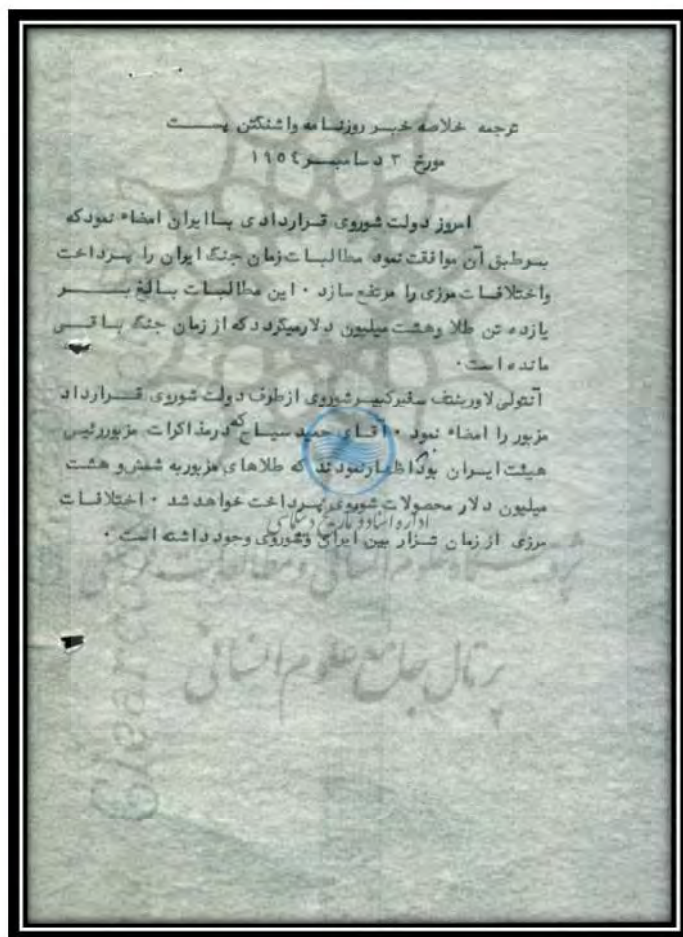 ترجمه خلاصه خبر روزنامه واشنگتن پست
مورخ ۳ دسامبر ۱۹۵۴
امروز دولت شوروی قراردادی با ایران امضاء نمود که
برطبق آن موافقت نمود مطالبات زمان جنگ ایران را پرداخت
واختلافات مرزی را مرتفع سازد . این مطالبات بالغ بر
یازده تن طلا وهشت میلیون دلار میگردد که از زمان جنگ باقی
مانده است .
آنتولی لاورینتف سفیرکبیر شوروی از طرف دولت شوروی قرارداد
مزبور را امضاء نمود . آقای حمید سیاح که درمذاکرات مزبور رئیس
هیئت ایران بود اظهار نمودند که طلاهای مزبور به شمش و هشت
میلیون دلار محصولات شوروی پرداخت خواهد شد . اختلافات
اداره اسناد و تاریخ دیپلماسی
مرزی از زمان تزار بین ایران وشوروی وجود داشته است .
پژوهشگاه علوم انسانی و مطالعات فرهنگی
پرتال جامع علوم انسانی